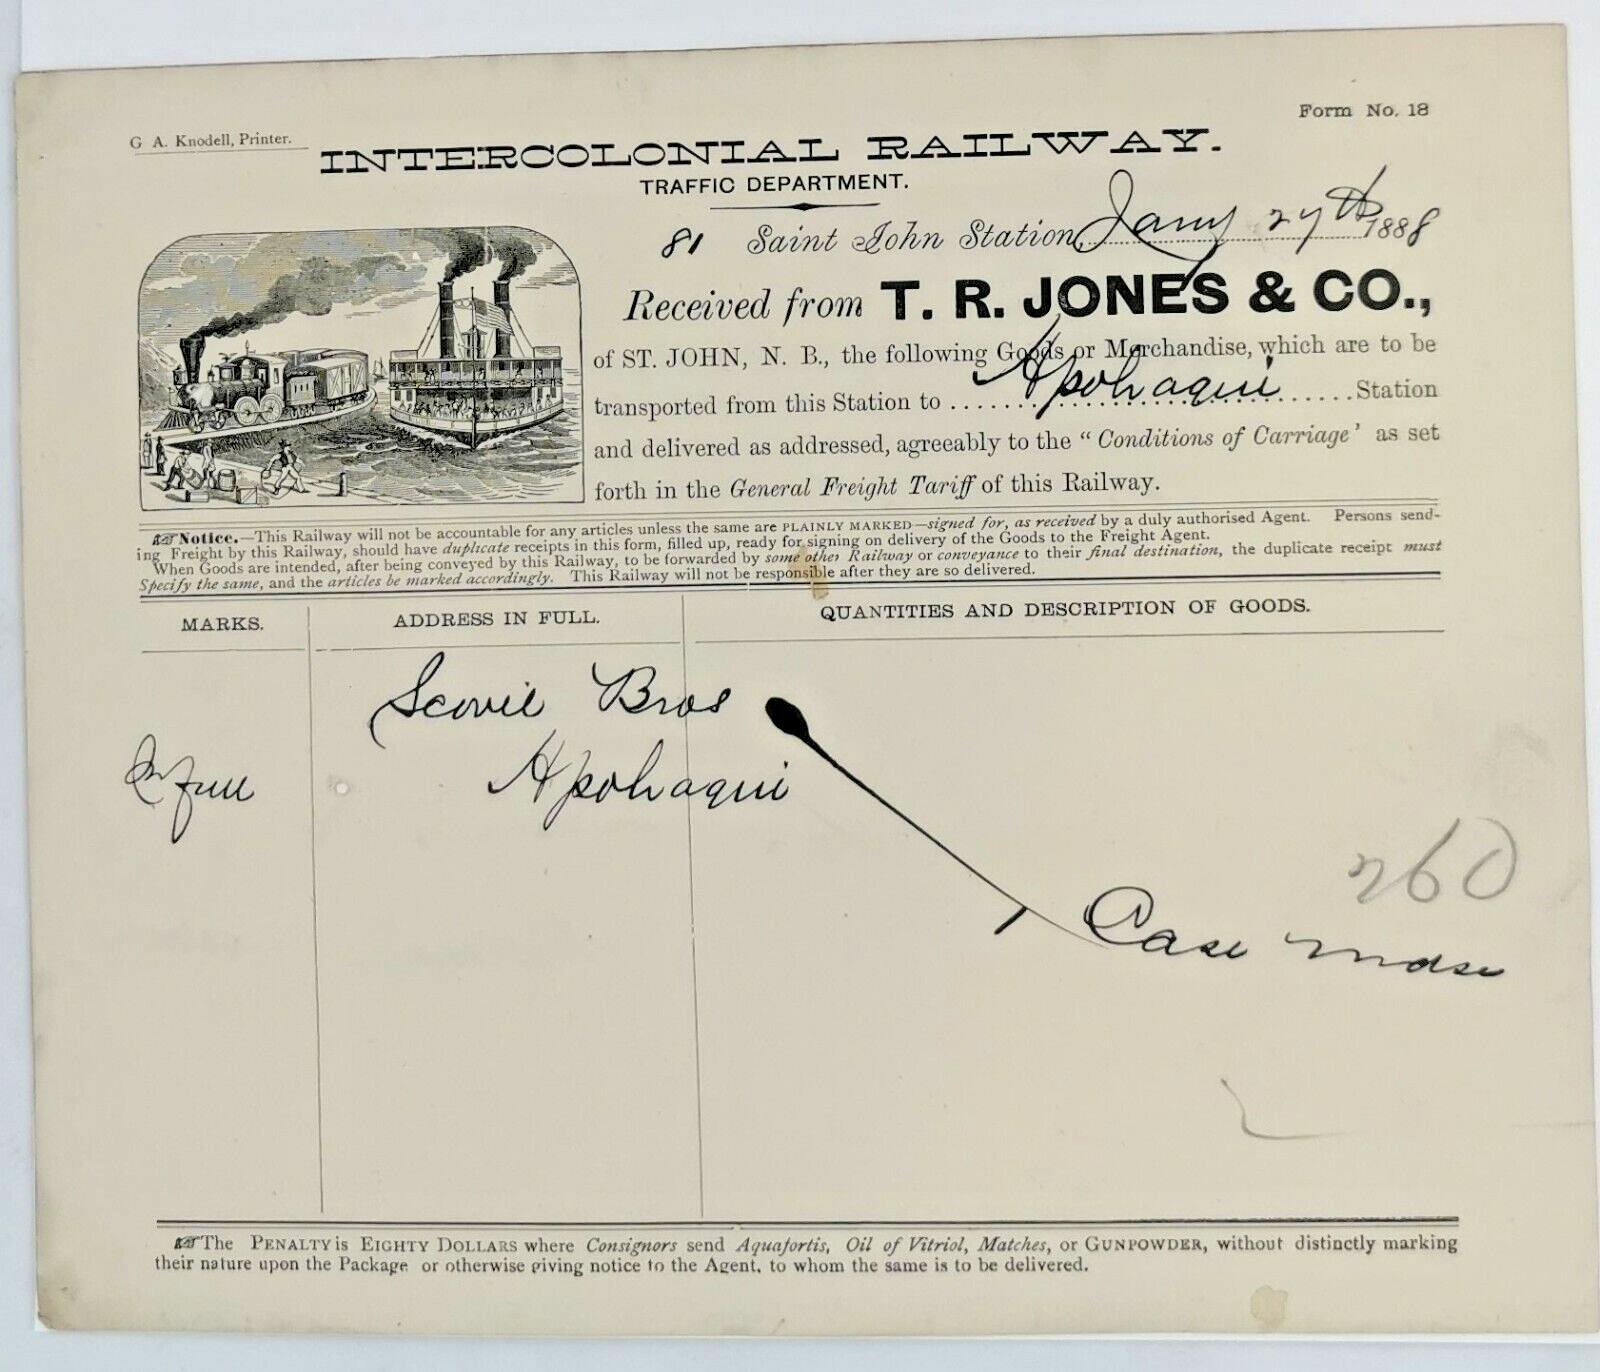 Form No. 18
G A. Knodell, Printer.
INTERCOLONIAL RAILWAY.
TRAFFIC DEPARTMENT.
81 Saint John Station, Jany 27th 1888
Received from T. R. JONES & CO.,
of ST. JOHN, N. B., the following Goods or Merchandise, which are to be
transported from this Station to Apohaqui Station
and delivered as addressed, agreeably to the "Conditions of Carriage' as set
forth in the General Freight Tariff of this Railway.
☞Notice.—This Railway will not be accountable for any articles unless the same are PLAINLY MARKED—signed for, as received by a duly authorised Agent. Persons send-
ing Freight by this Railway, should have duplicate receipts in this form, filled up, ready for signing on delivery of the Goods to the Freight Agent.
When Goods are intended, after being conveyed by this Railway, to be forwarded by some other Railway or conveyance to their final destination, the duplicate receipt must
Specify the same, and the articles be marked accordingly. This Railway will not be responsible after they are so delivered.
MARKS. ADDRESS IN FULL. QUANTITIES AND DESCRIPTION OF GOODS.
Scovil Bros
In full Apohaqui
260
1 Case mdse
☞The PENALTY is EIGHTY DOLLARS where Consignors send Aquafortis, Oil of Vitriol, Matches, or GUNPOWDER, without distinctly marking
their nature upon the Package or otherwise giving notice to the Agent, to whom the same is to be delivered.